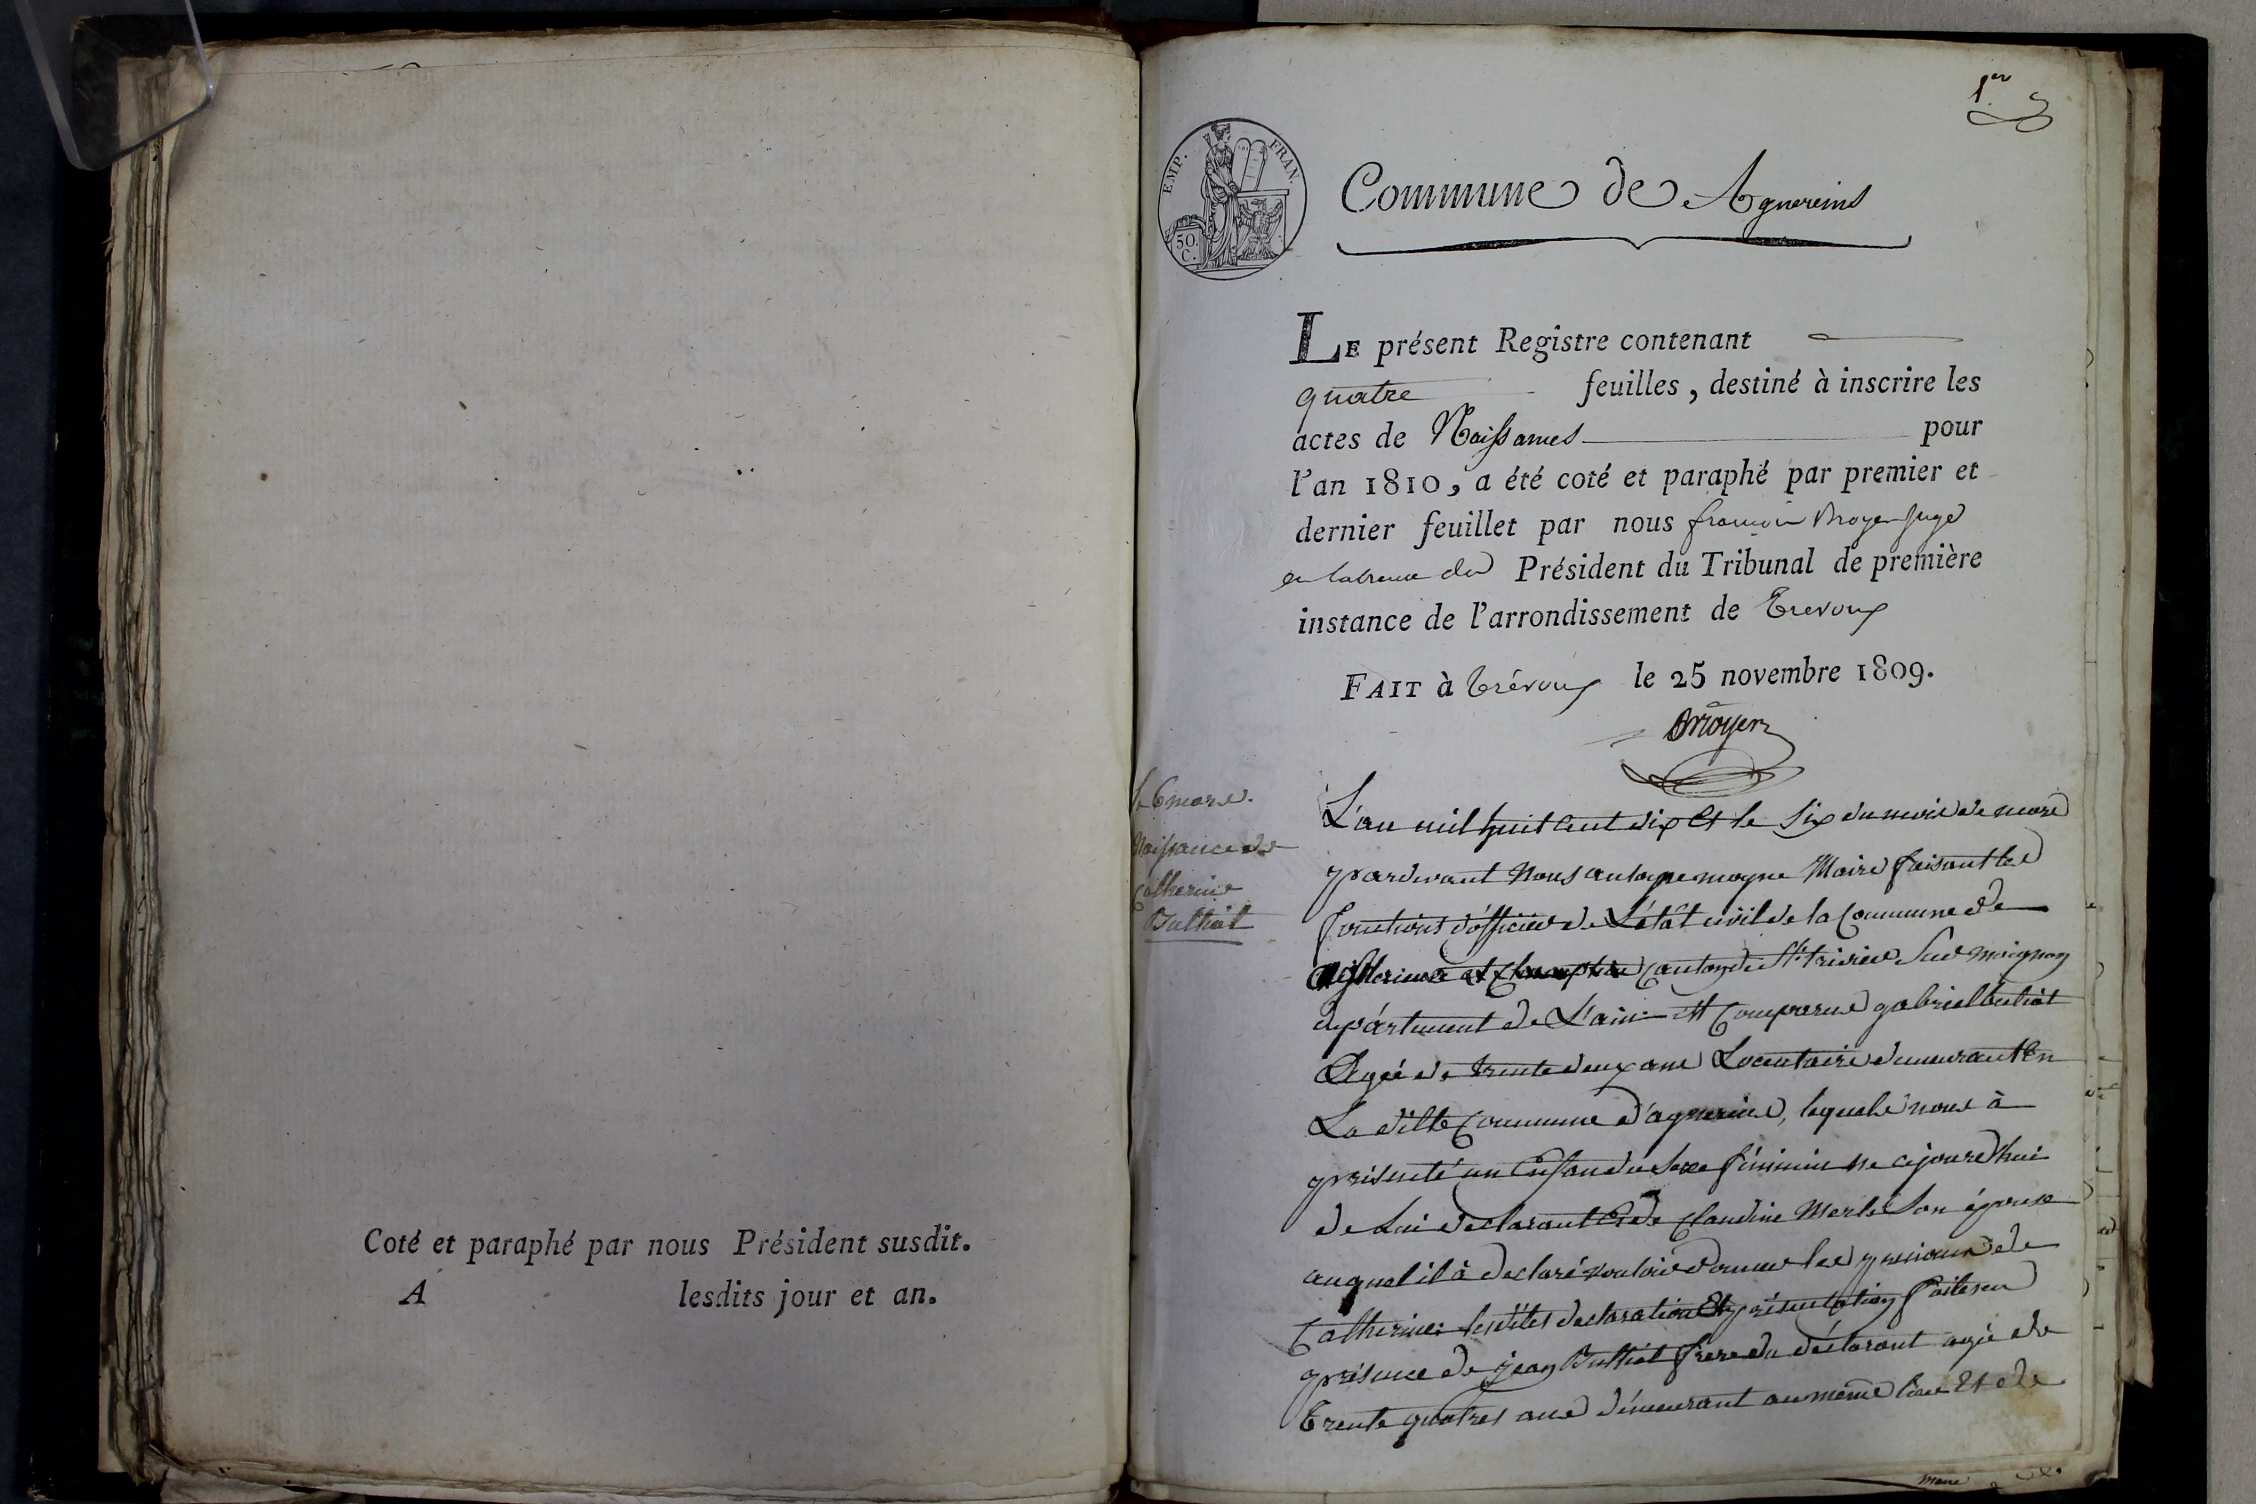 Coté et paraphé par nous Président susdit.
A lesdits jour et an.
1er
EMP. FRAN.
50. C.
Commune de Aguereins
LE présent Registre contenant
quatre feuilles, destiné à inscrire les
actes de Naissances pour
l'an 1810, a été coté et paraphé par premier et
dernier feuillet par nous françois Moyer Juge
en labsence du Président du Tribunal de première
instance de l'arrondissement de Trevoux
FAIT à Trévoux le 25 novembre 1809.
le 6 mars.
Naissance de
Catherine
Bulliat
L'an mil huit cent dix et le six du mois de mars
pardevant nous antoine moyne Maire faisant les
fonctions d'officier de L'état civil de la Commune de
Canton de St trivier Sur moignans
département de L'ain est Comparu gabriel bulliat
Agé de trente deux ans Locataire demeurant En
La ditte Commune d'aguereins, lequel nous à
présenté un Enfant du sexe féminin né cejourd'hui
de Lui déclarant Et de Claudine Merle Son épouse
auquel il à declaré vouloir donner les prenoms de
Catherine: lesdites declaration Et présentation faites en
présence de jean Bulliat frere du déclarant agé de
trente quatres ans démeurant au même lieu Et de